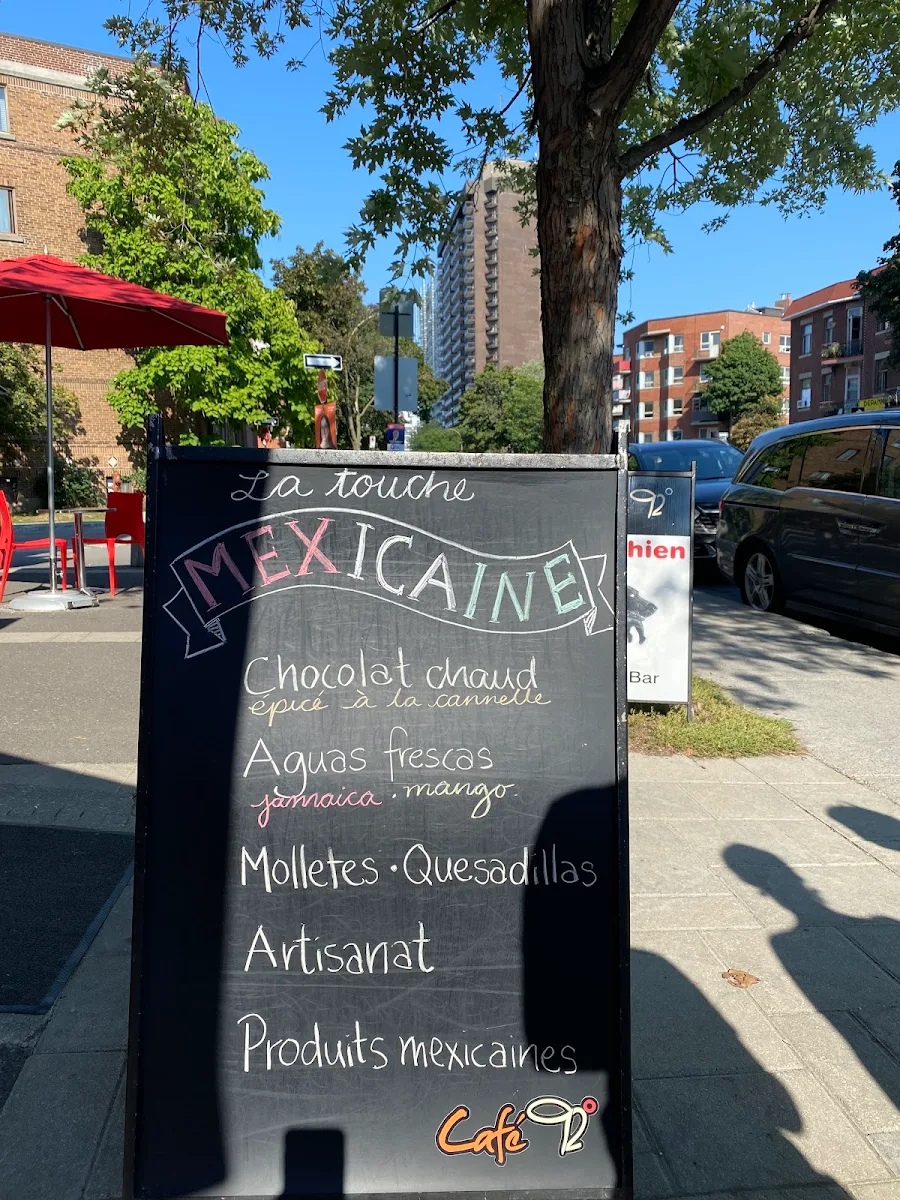 La touche
MEXICAINE
Chocolat chaud
épicé à la cannelle
Aguas frescas
jamaica · mango
Molletes · Quesadillas
Artisanat
Produits mexicaines
Café
hien
Bar